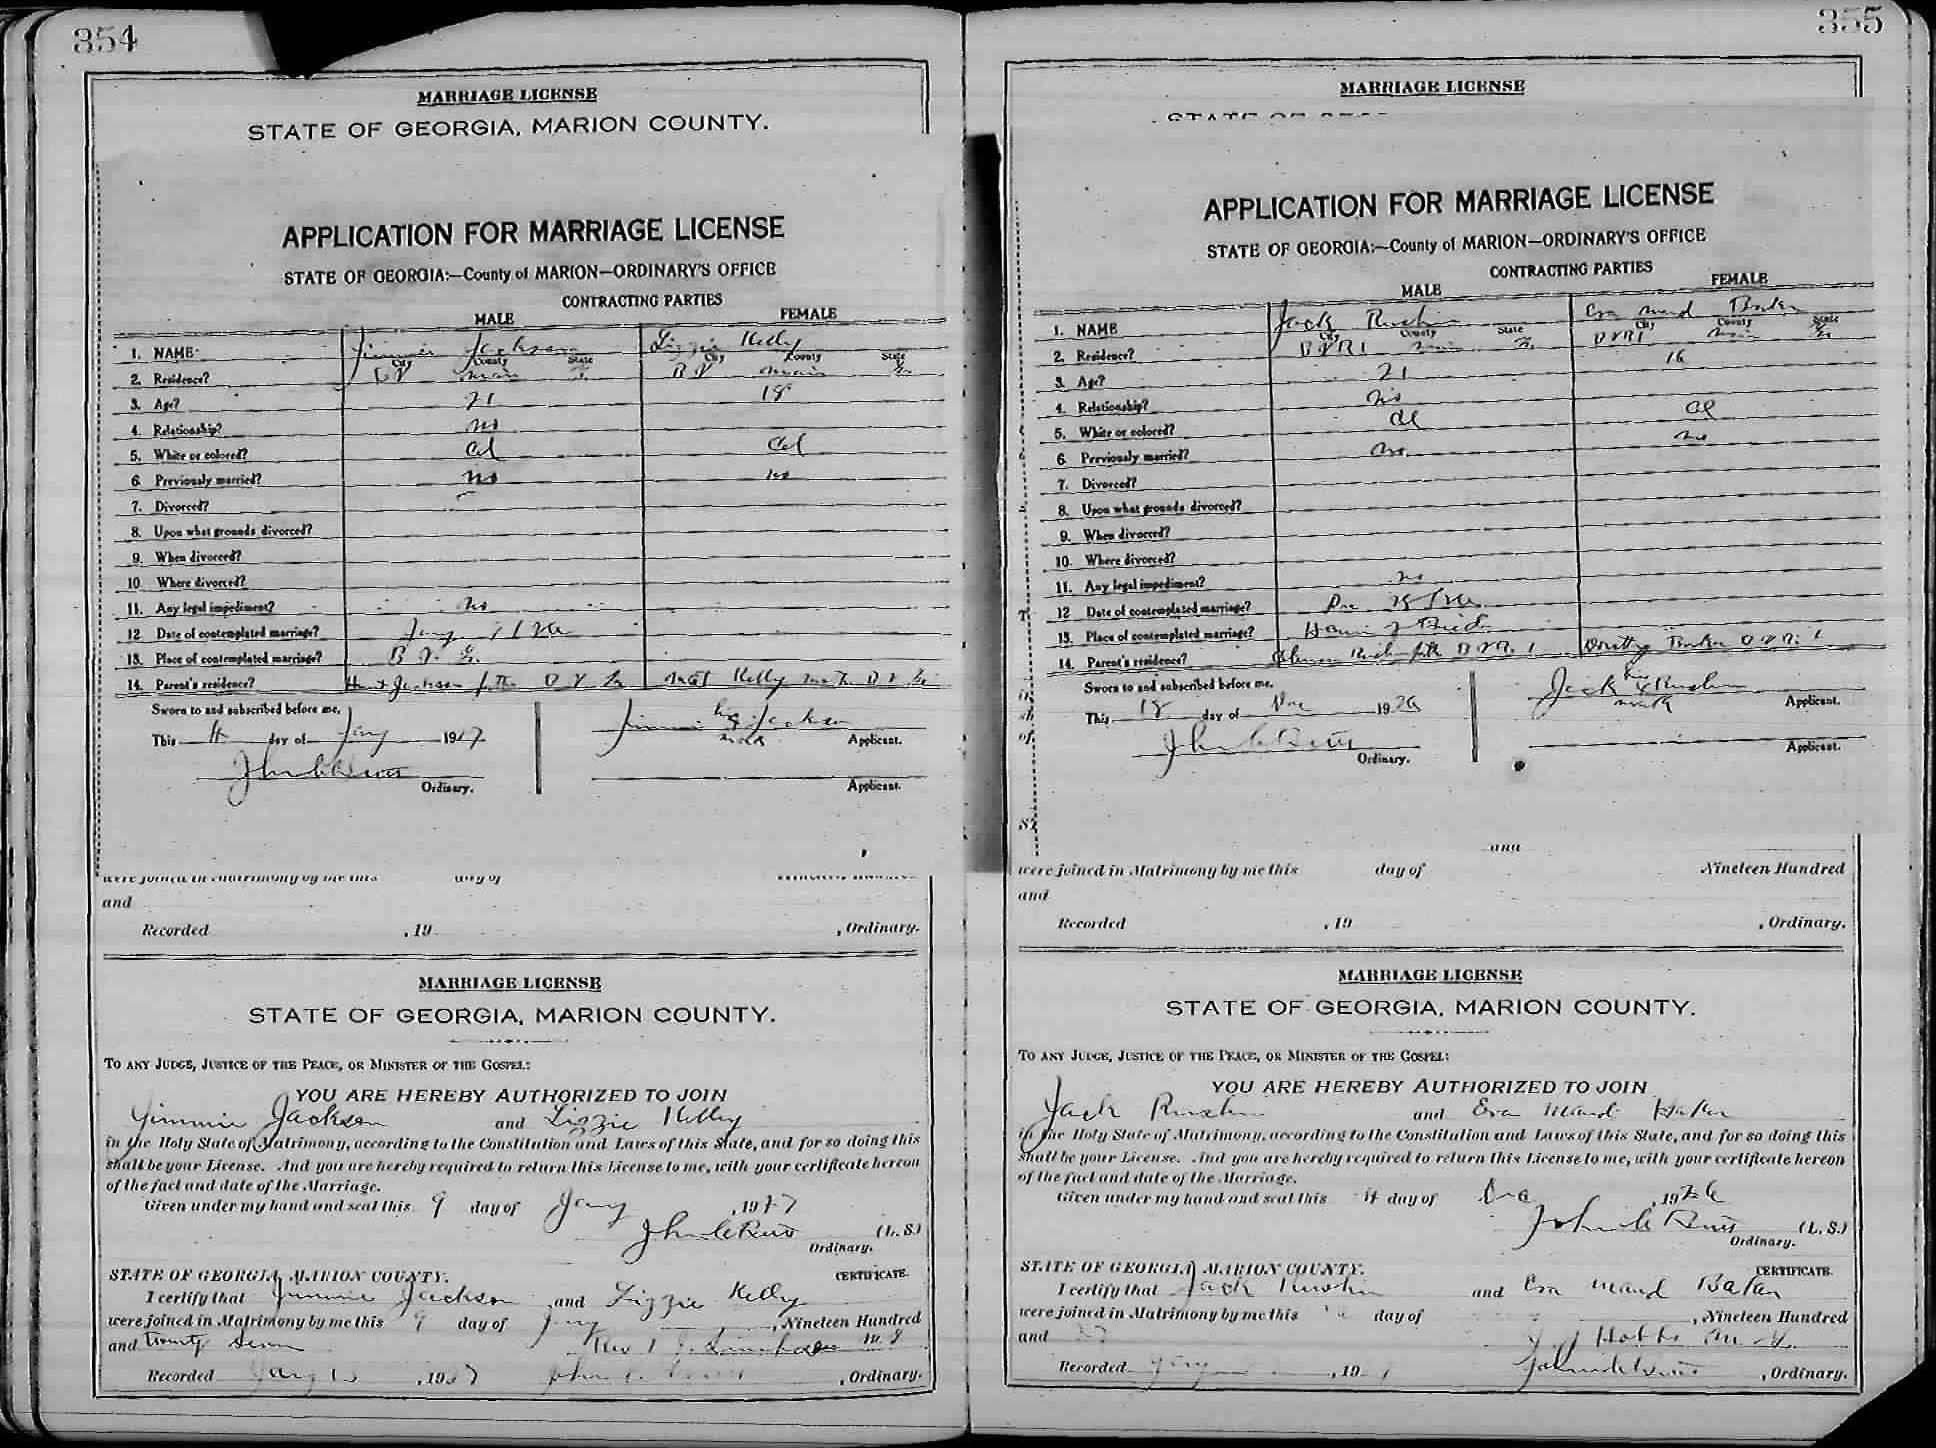 354
MARRIAGE LICENSE
STATE OF GEORGIA, MARION COUNTY.
APPLICATION FOR MARRIAGE LICENSE
STATE OF GEORGIA:—County of MARION—ORDINARY'S OFFICE
CONTRACTING PARTIES
MALE FEMALE
1. NAME Jimmie Jackson Lizzie Kelly
City County State City County State
2. Residence? B V
3. Age? 21 18
4. Relationship? no
5. White or colored? Col Col
6. Previously married? no no
7. Divorced?
8. Upon what grounds divorced?
9. When divorced?
10. Where divorced?
11. Any legal impediment? no
12. Date of contemplated marriage? Jany
13. Place of contemplated marriage? B V Ga
14. Parent's residence? Jackson Kelly
Sworn to and subscribed before me,
This day of Jany 1927
Jimmie his Jackson
mark Applicant.
Ordinary.
Applicant.
were joined in Matrimony by me this day of
and
Recorded , 19 , Ordinary.
MARRIAGE LICENSE
STATE OF GEORGIA, MARION COUNTY.
TO ANY JUDGE, JUSTICE OF THE PEACE, OR MINISTER OF THE GOSPEL:
YOU ARE HEREBY AUTHORIZED TO JOIN
Jimmie Jackson and Lizzie Kelly
in the Holy State of Matrimony, according to the Constitution and Laws of this State, and for so doing this
shall be your License. And you are hereby required to return this License to me, with your certificate hereon
of the fact and date of the Marriage.
Given under my hand and seal this 9 day of Jany , 1927
(L. S.)
Ordinary.
STATE OF GEORGIA, MARION COUNTY. CERTIFICATE.
I certify that Jimmie Jackson and Lizzie Kelly
were joined in Matrimony by me this 9 day of Jany , Nineteen Hundred
and twenty Seven Rev
Recorded Jany , 1927 , Ordinary.
355
MARRIAGE LICENSE
APPLICATION FOR MARRIAGE LICENSE
STATE OF GEORGIA:—County of MARION—ORDINARY'S OFFICE
CONTRACTING PARTIES
MALE FEMALE
1. NAME Jack Rushin Eva Maud Baker
City County State City County State
2. Residence? B V R 1 B V R 1
3. Age? 21 16
4. Relationship? no
5. White or colored? Col Col
6. Previously married? no no
7. Divorced?
8. Upon what grounds divorced?
9. When divorced?
10. Where divorced?
11. Any legal impediment? no
12 Date of contemplated marriage? Dec
13. Place of contemplated marriage? Home of Bride
14. Parent's residence? Rushin B V R. 1 Baker B V R. 1
Sworn to and subscribed before me,
This 18 day of Dec 1926
Jack his Rushin
mark Applicant.
Ordinary.
Applicant.
and
were joined in Matrimony by me this day of Nineteen Hundred
and
Recorded , 19 , Ordinary.
MARRIAGE LICENSE
STATE OF GEORGIA, MARION COUNTY.
TO ANY JUDGE, JUSTICE OF THE PEACE, OR MINISTER OF THE GOSPEL:
YOU ARE HEREBY AUTHORIZED TO JOIN
Jack Rushin and Eva Maud Baker
in the Holy State of Matrimony, according to the Constitution and Laws of this State, and for so doing this
shall be your License. And you are hereby required to return this License to me, with your certificate hereon
of the fact and date of the Marriage.
Given under my hand and seal this day of Dec , 1926
(L. S.)
Ordinary.
STATE OF GEORGIA, MARION COUNTY. CERTIFICATE.
I certify that Jack Rushin and Eva Maud Baker
were joined in Matrimony by me this day of , Nineteen Hundred
and Hobbs
Recorded Jany , 19 , Ordinary.